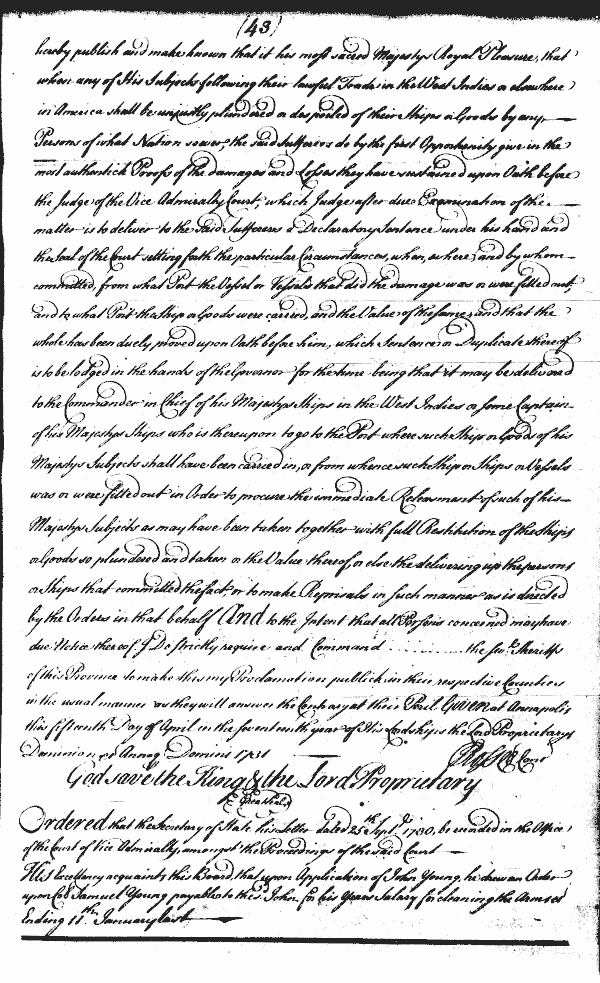 (43)
hereby publish and make known that it his most sacred Majestys Royal Pleasure, that
when any of His Subjects following their lawful Trade in the West Indies or elsewhere
in America shall be unjustly plundered or despoiled of their Ships or Goods by any
Persons of what Nation soever, the said Sufferers do by the first Opportunity give in the
most authentick Proofs of the Damages and Losses they have sustained upon Oath before
the Judge of the Vice Admiralty Court, which Judge after due Examination of the
matter is to deliver to the said Sufferers a Declaratory Sentence under his hand and
the Seal of the Court setting forth the particular Circumstances, when, where, and by whom
committed, from what Port the Vessel or Vessels that did the damage was or were fitted out,
and to what Port the Ship or Goods were carried, and the Value of the same, and that the
whole has been duely, proved upon Oath before him, which Sentence or Duplicate thereof
is to be lodged in the hands of the Governor for the time being that it may be delivered
to the Commander in Chief of his Majestys Ships in the West Indies or some Captain
of his Majestys Ships who is thereupon to go to the Port where such Ship or Goods of his
Majestys Subjects shall have been carried in, or from whence such Ship or Ships or Vessels
was or were fitted out in Order to procure the immediate Releasment of such of his
Majestys Subjects as may have been taken together with full Restitution of the Ships
or Goods so plundered and taken or the Value thereof, or else the delivering up the persons
or Ships that committed the fact or to make Reprisals in such manner as is directed
by the Orders in that behalf And to the Intent that all Persons concerned may have
due Notice thereof I Do strictly require and Command the sev.ll Sheriffs
of this Province to make this my Proclamation publick in their respective Counties
in the usual manner as they will answer the Contrary at their Peril Given at Annapolis
this fifteenth Day of April in the seventeenth year of His Lordship the Lord Proprietarys
Dominion Annoq Domini 1731
God save the King & the Lord Proprietary
Ordered that the Secretary of State his Letter dated 25th Sept. 1730, be in the Office
of the Court of Vice Admiralty, amongst the Proceedings of the said Court
His Excellency acquaints this Board, that upon Application of John Young, he drew an Order
upon Col Samuel Young payable to the sd. John for his Years Salary for cleaning the Arms
Ending 11th January last